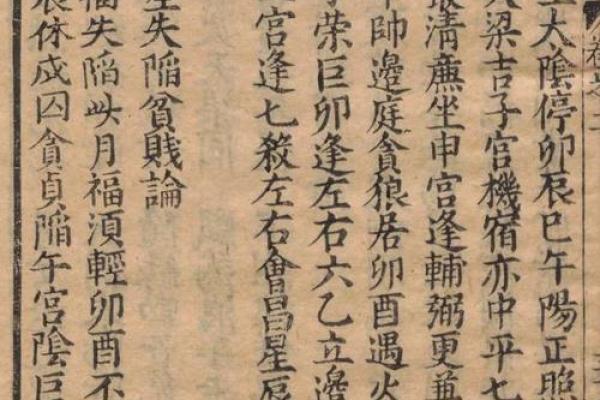 大陰停卯辰巳午陽正照
梁吉子宮機宿亦中平七
清廉坐申宮逢輔弼更兼
帥邊庭貪狼居卯酉遇火
榮巨卯逢左右六乙立邊
宮逢七殺左右會昌星辰
失陷貧賤論
失陷此月福須輕卯酉不
休成囚貪貞陷午宮陰巨